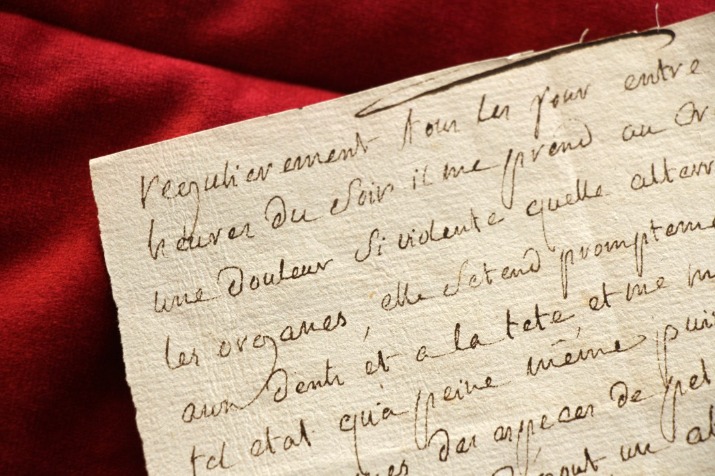 reegulierement tous les jour entre
heures du soir il me prend au
une douleur si violente quelle alterr
les organes, elle setend prompteme
aux dents et a la tete et me m
tel etat qu'a peine même puis
des especes de pet
un al